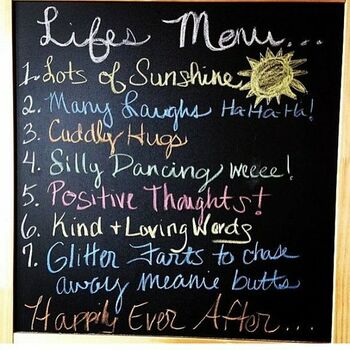 Lifes Menu...
1. Lots of Sunshine
2. Many Laughs Ha-Ha-Ha!
3. Cuddly Hugs
4. Silly Dancing weeee!
5. Positive Thoughts!
6. Kind + Loving Words
7. Glitter Farts to chase
away meanie butts
Happily Ever After...